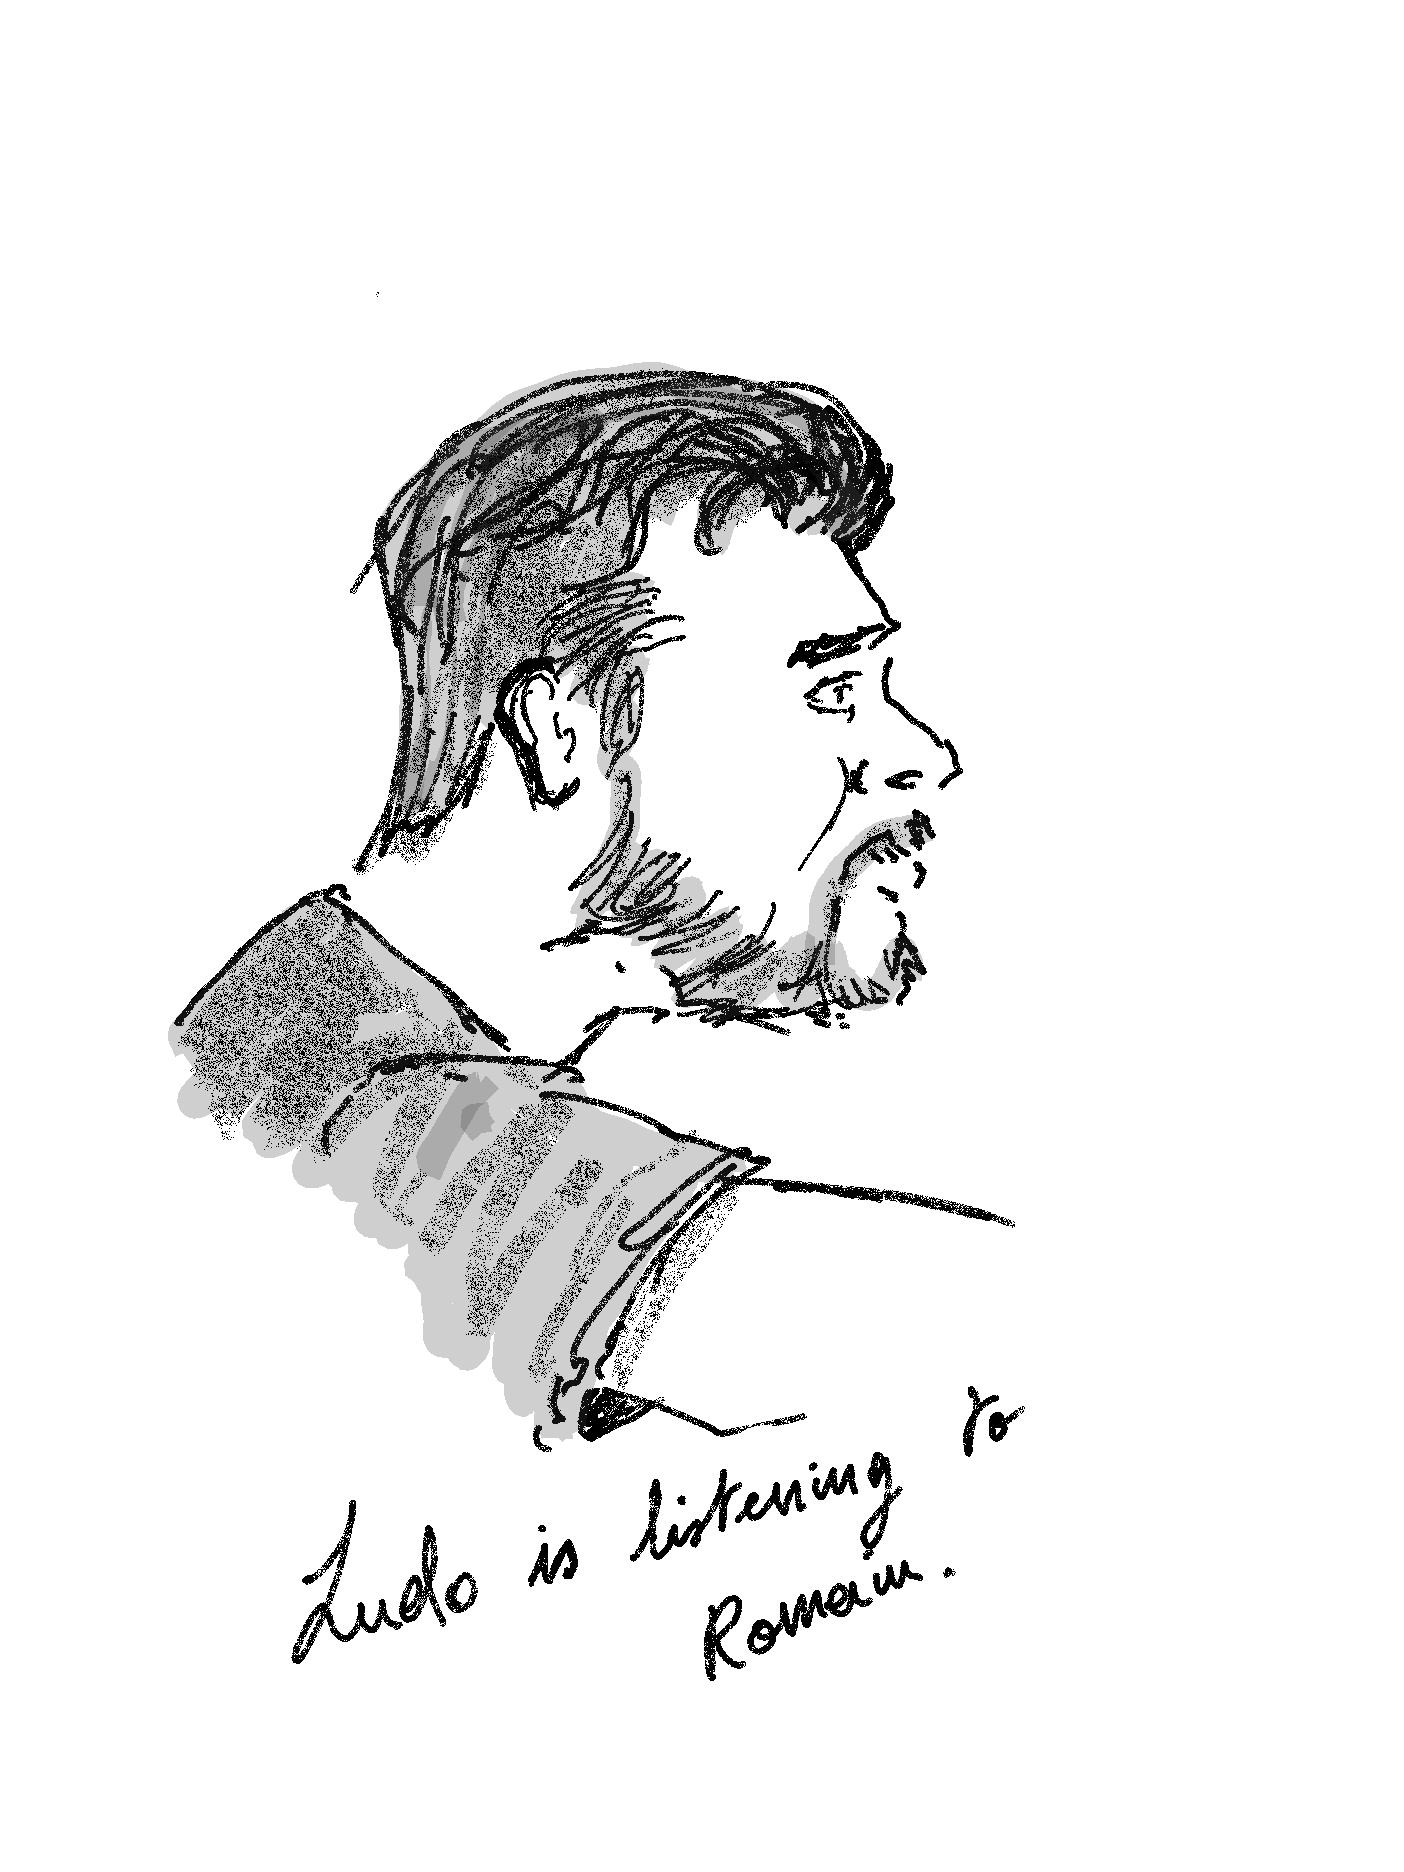 Ludo is listening to
Romain.